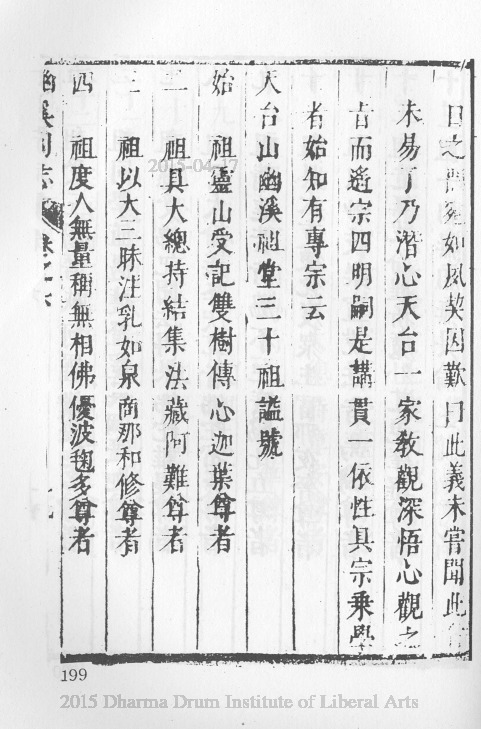 日之間宛如夙契因歎曰此義未嘗聞此
未易了乃潛心天台一家教觀深悟心觀之
旨而遙宗四明嗣是講貫一依性具宗乘學
者始知有專宗云
天台山幽溪祖堂三十祖謚號
始　祖靈山受記雙樹傳心迦葉尊者
二　祖具大總持結集法藏阿難尊者
三　祖以大三昧注乳如泉商那和修尊者
四　祖度人無量稱無相佛優波毱多尊者
幽溪別志　卷之六
199
2015-04-17
2015 Dharma Drum Institute of Liberal Arts